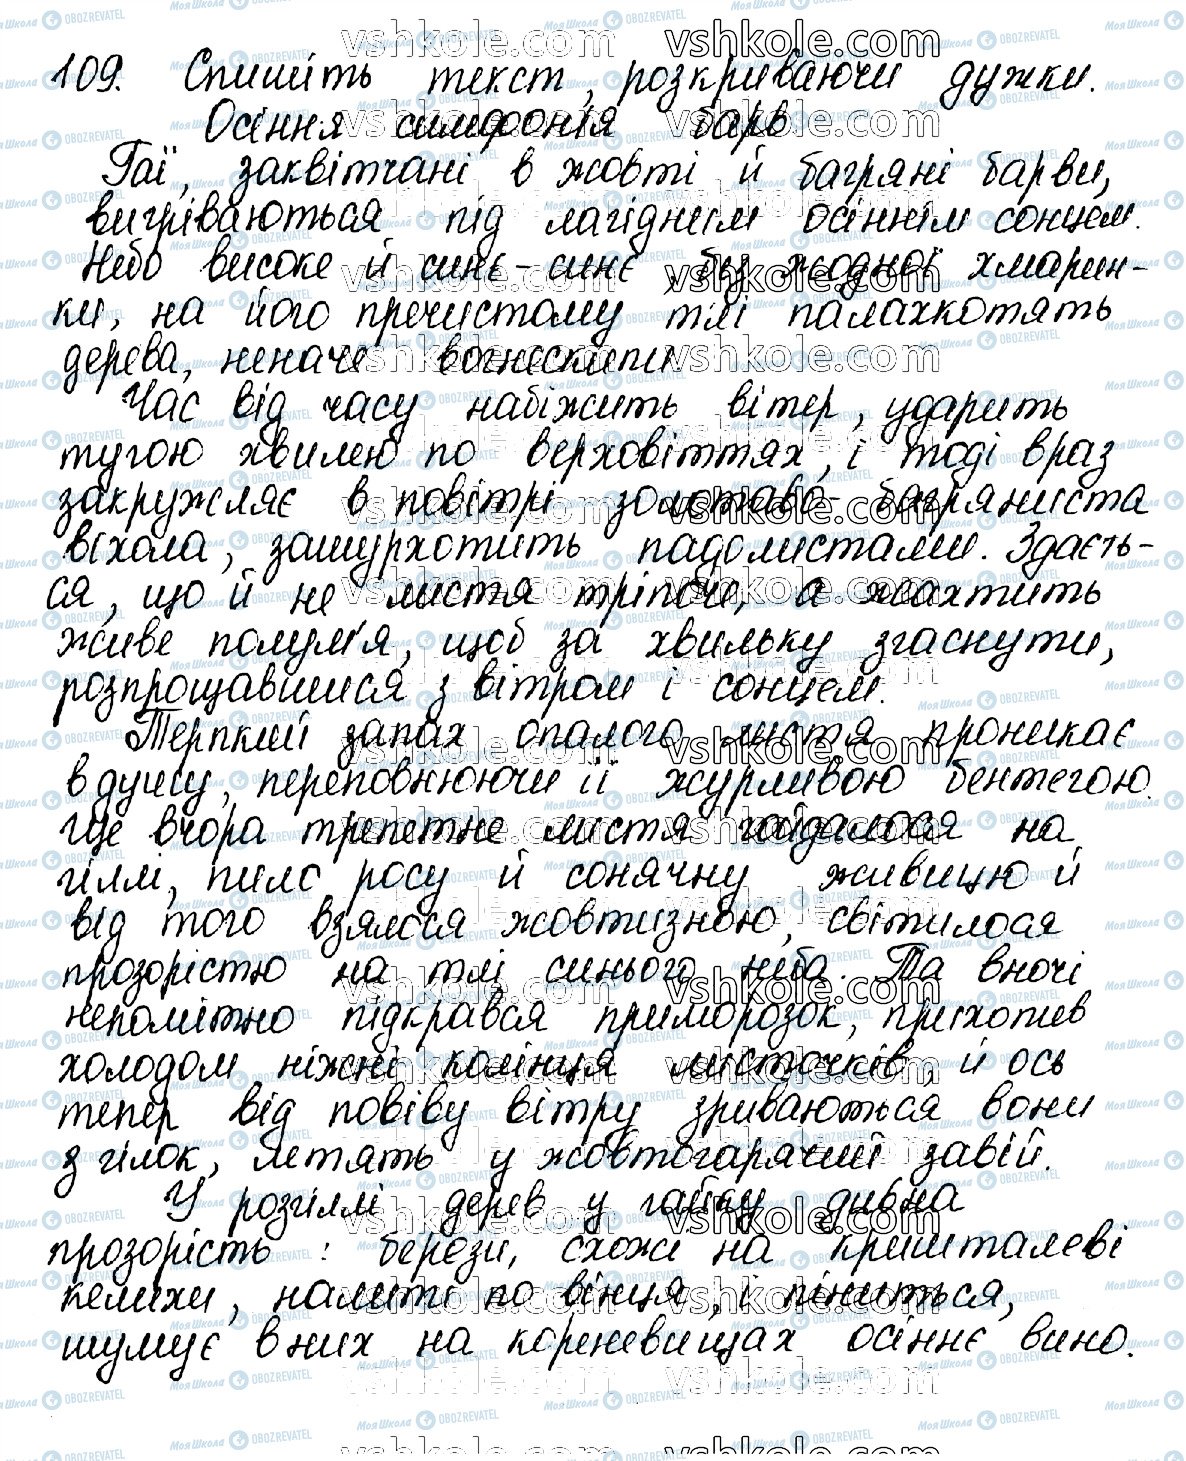 109. Спишіть текст, розкриваючи дужки.
Осіння симфонія барв
Гаї, заквітчані в жовті й багряні барви,
вигріваються під лагідним осіннім сонцем.
Небо високе й синє-синє, без жодної хмарин-
ки, на його пречистому тлі палахкотять
дерева, неначе вогнескипи
Час від часу набіжить вітер, ударить
тугою хвилею по верховіттях, і тоді враз
закружляє в повітрі золотаво-багряниста
віхола, зашурхотить падолистами. Здаєть-
ся, що й не листя тріпоче, а жахтить
живе полум'я, щоб за хвильку згаснути,
розпрощавшися з вітром і сонцем.
Терпкий запах опалого листя проникає
в душу, переповнюючи її журливою бентегою.
Ще вчора трепетне листя гойдалося на
гіллі, пило росу й сонячну живицю й
від того взялося жовтизною, світилося
прозорістю на тлі синього неба. Та вночі
непомітно підкрався приморозок, прихопив
холодом ніжні колінця листочків, й ось
тепер від повіву вітру зриваються вони
з гілок, летять у жовтогарячий завій.
У розгіллі дерев у гайку дивна
прозорість: берози, схожі на кришталеві
келихи, налиті по вінця, і піниться,
шумує в них на кореневищах осіннє вино.